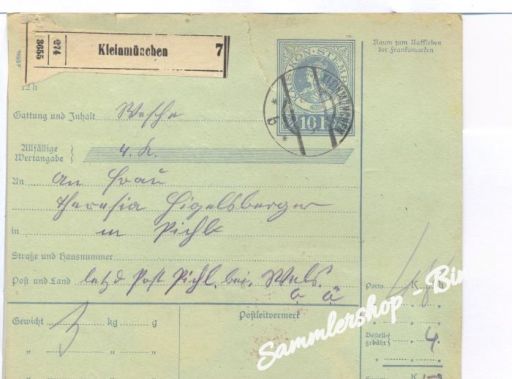 3655
674
Kleinmünchen 7
STEMPEL
10 H
KLEINMÜNCHEN
* b *
Raum zum Aufkleben
der Frankomarken
Gattung und Inhalt Wesche
Allfällige
Wertangabe 4 K.
An An Frau
Theresia Higelsberger
in in Pichl
Straße und Hausnummer
Post und Land letzte Post Pichl bei Wels.
O. Ö.
Porto
Gewicht 3 kg g
Postleitvermerk
Bestell-
gebühr 4
" "
Sammlershop - Bi